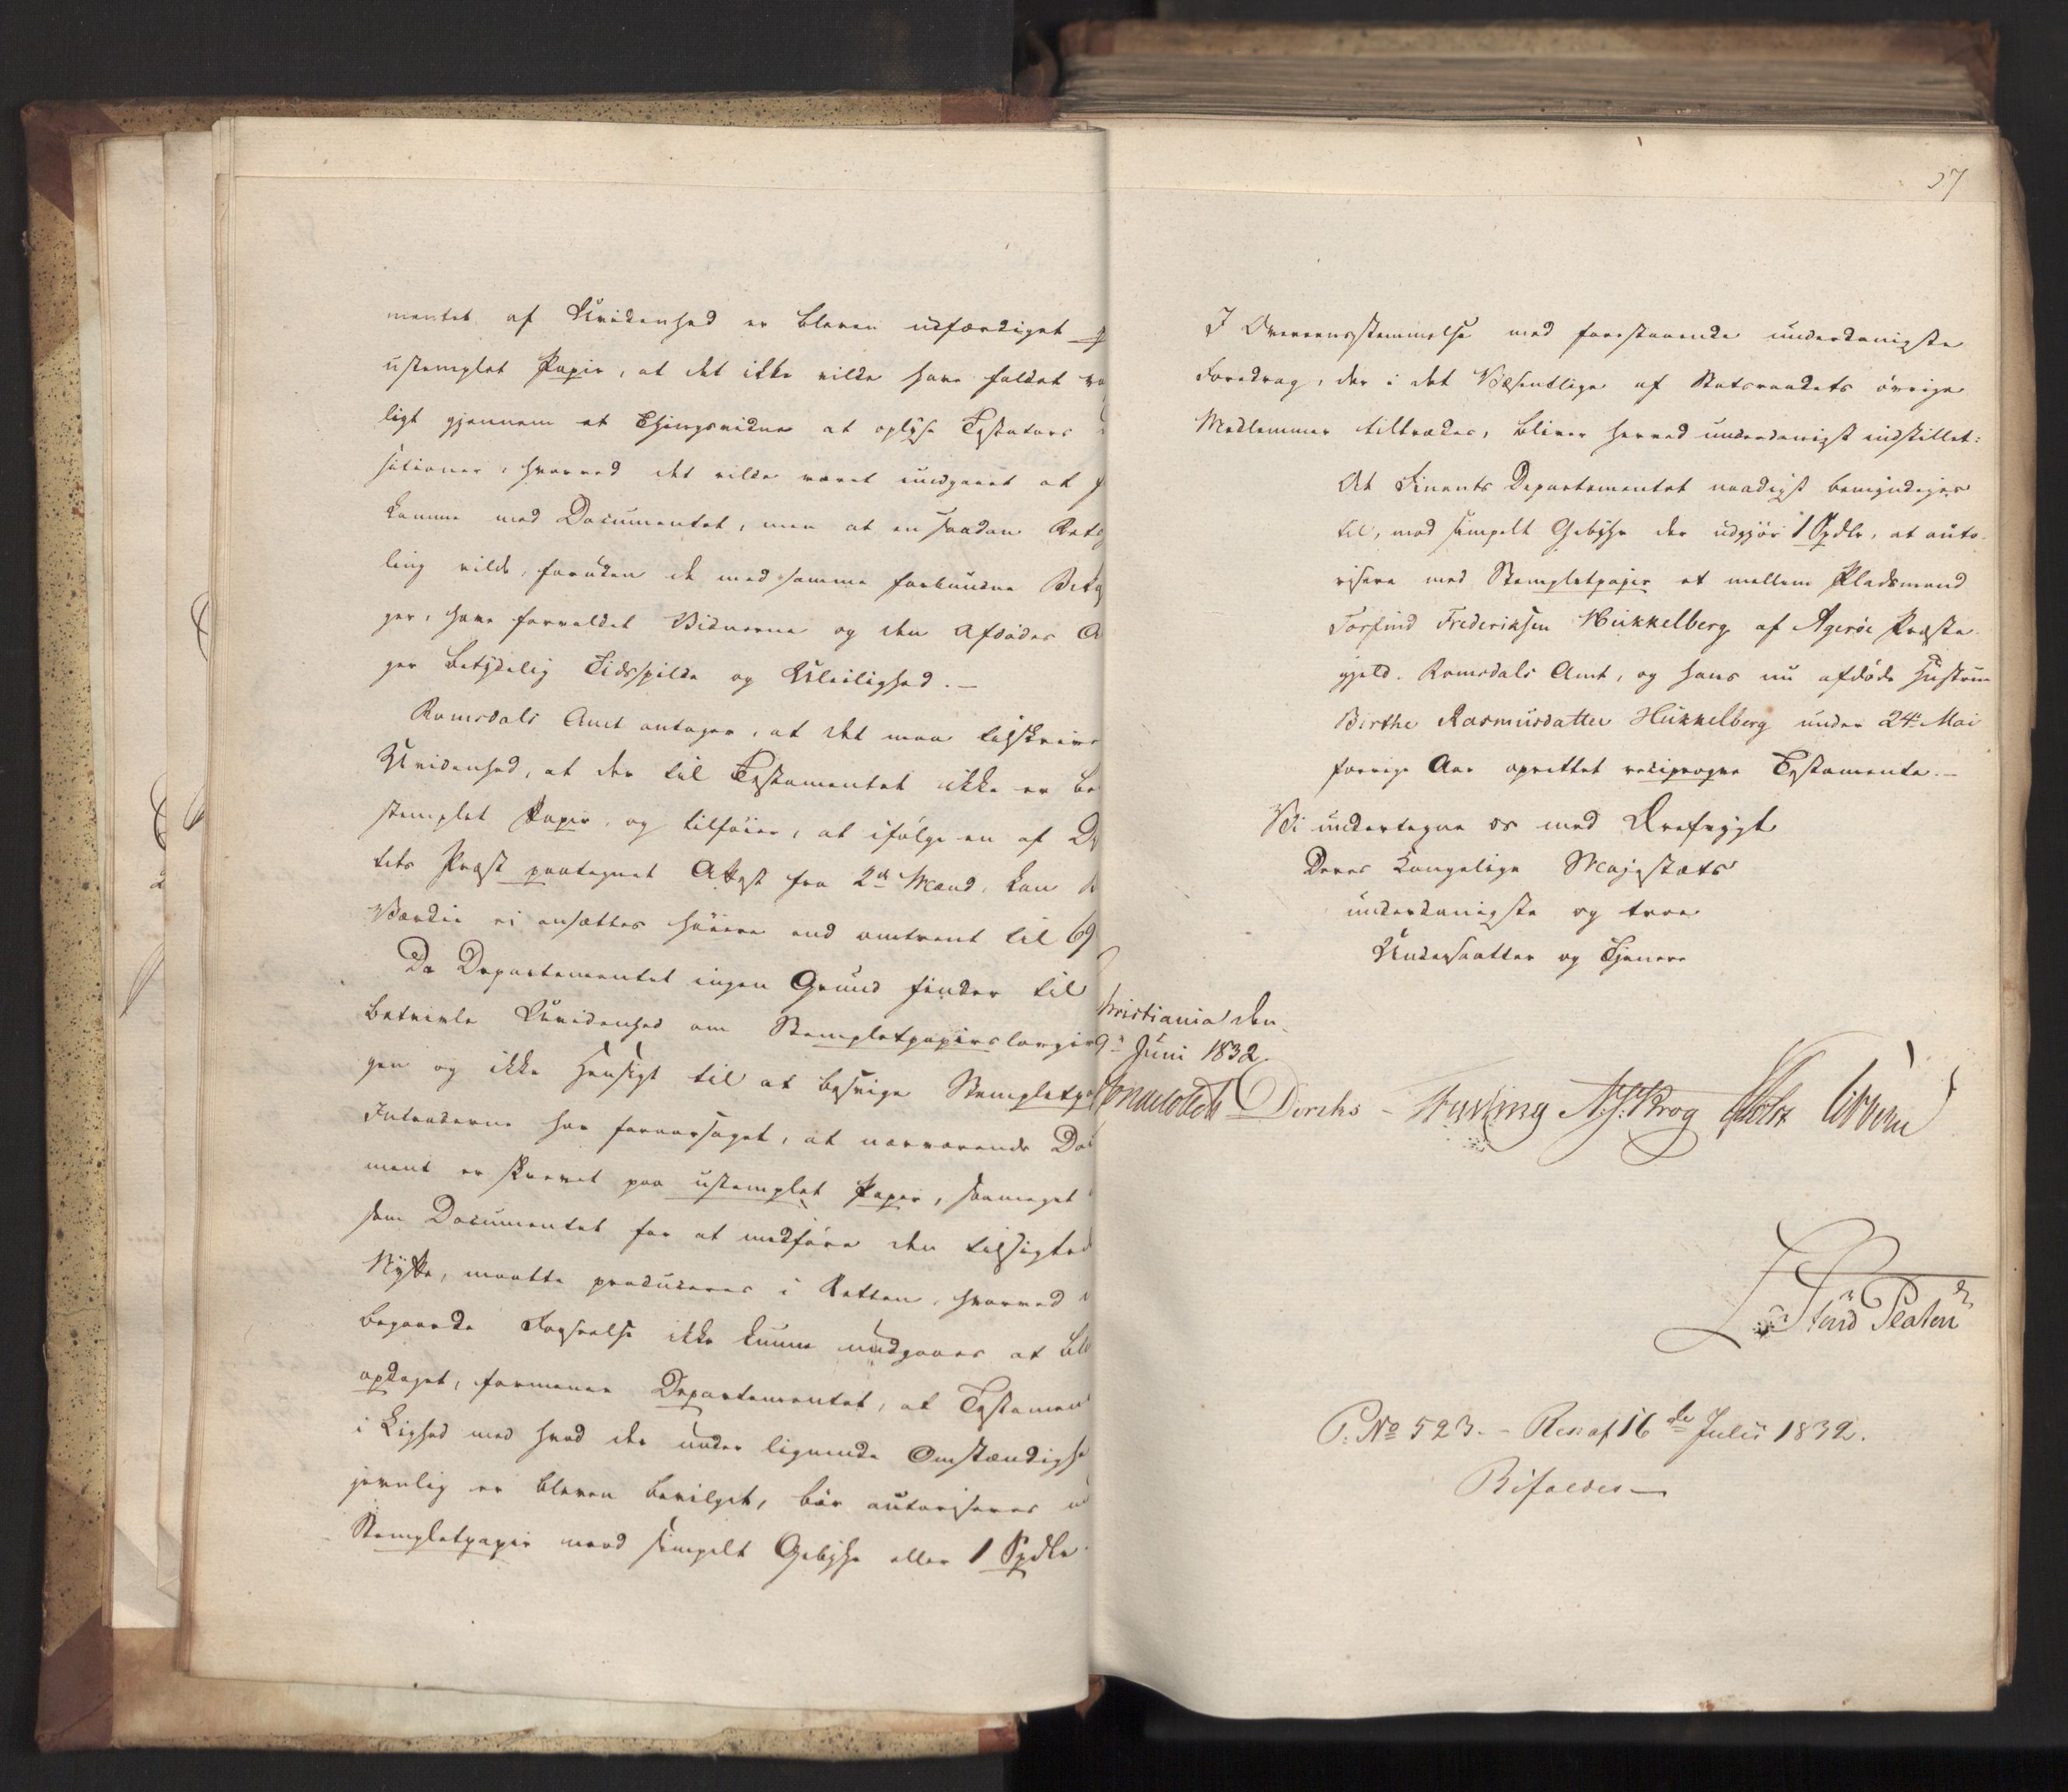 mentet af Uvidenhed er bleven udfærdiget p
ustemplet Papir, at det ikke vilde have faldet va
ligt gjennem et Thingsvidne at oplyse Testators
sitioner, hvorved det vilde været undgaaet at f
komme med Documentet, men at en saadan Rets
ling vilde, foruden de med samme forbundne Bek
ger, have forvoldet Vidnerne og den Afdødes A
ger betydelig Tidsspilde og Uleilighed.—
Romsdals Amt antager, at det maa tilskrives
Uvidenhed, at der til Testamentet ikke er be
stemplet Papir, og tilføier, at ifølge en af D
tets Præst paategnet Attest fra 2de Mænd, kan
Værdie ei ansættes høiere end omtrent til 69
Da Departementet ingen Grund finder til
betvivle Uvidenhed om Stempletpapirslovgivn
gen og ikke Hensigt til at besvige Stempletpa
Intraderne har foraarsaget, at nærværende Do
ment er skrevet paa ustemplet Papir, saameget
som Documentet for at medføre den tilsigtede
Nytte, maatte produceres i Retten, hvorved
begaaede Forseelse ikke kunne undgaaes at bl
opdaget, formener Departementet, at Testamen
i Lighed med hvad der under lignende Omstændighe
jevnlig er bleven bevilget, bør autoriseres
Stempletpapir mod simpelt Gebyhr eller 1 Spdlr
37
I Overeensstemmelse med foranstaaende underdanigste
Foredrag, der i det Væsentlige af Statsraadets øvrige
Medlemmer tiltrædes, bliver herved underdanigst indstillet:
At Finants Departementet naadigst bemyndiges
til, mod simpelt Gebyhr der udgjør 1 Spdlr, at auto-
risere med Stempletpapir et mellem Pladsmand
Torfind Frederiksen Hukkelberg af Agerøe Præste-
gjeld, Romsdals Amt, og hans nu afdøde Hustrue
Birthe Rasmusdatter Hukkelberg under 24de Mai
forrige Aar oprettet reciproqve Testamente.—
Vi undertegne os med Ærefrygt
Deres Kongelige Majestæts
underdanigste og troe
Undersaatter og Tjenere
hristiania den
9de Juni 1832.
Collett Diriks Fasting N. J. Krog Holst Vogt
Lövenskiold Platen
P. No 523. – Res. af 16de Julii 1832.
Bifaldes—